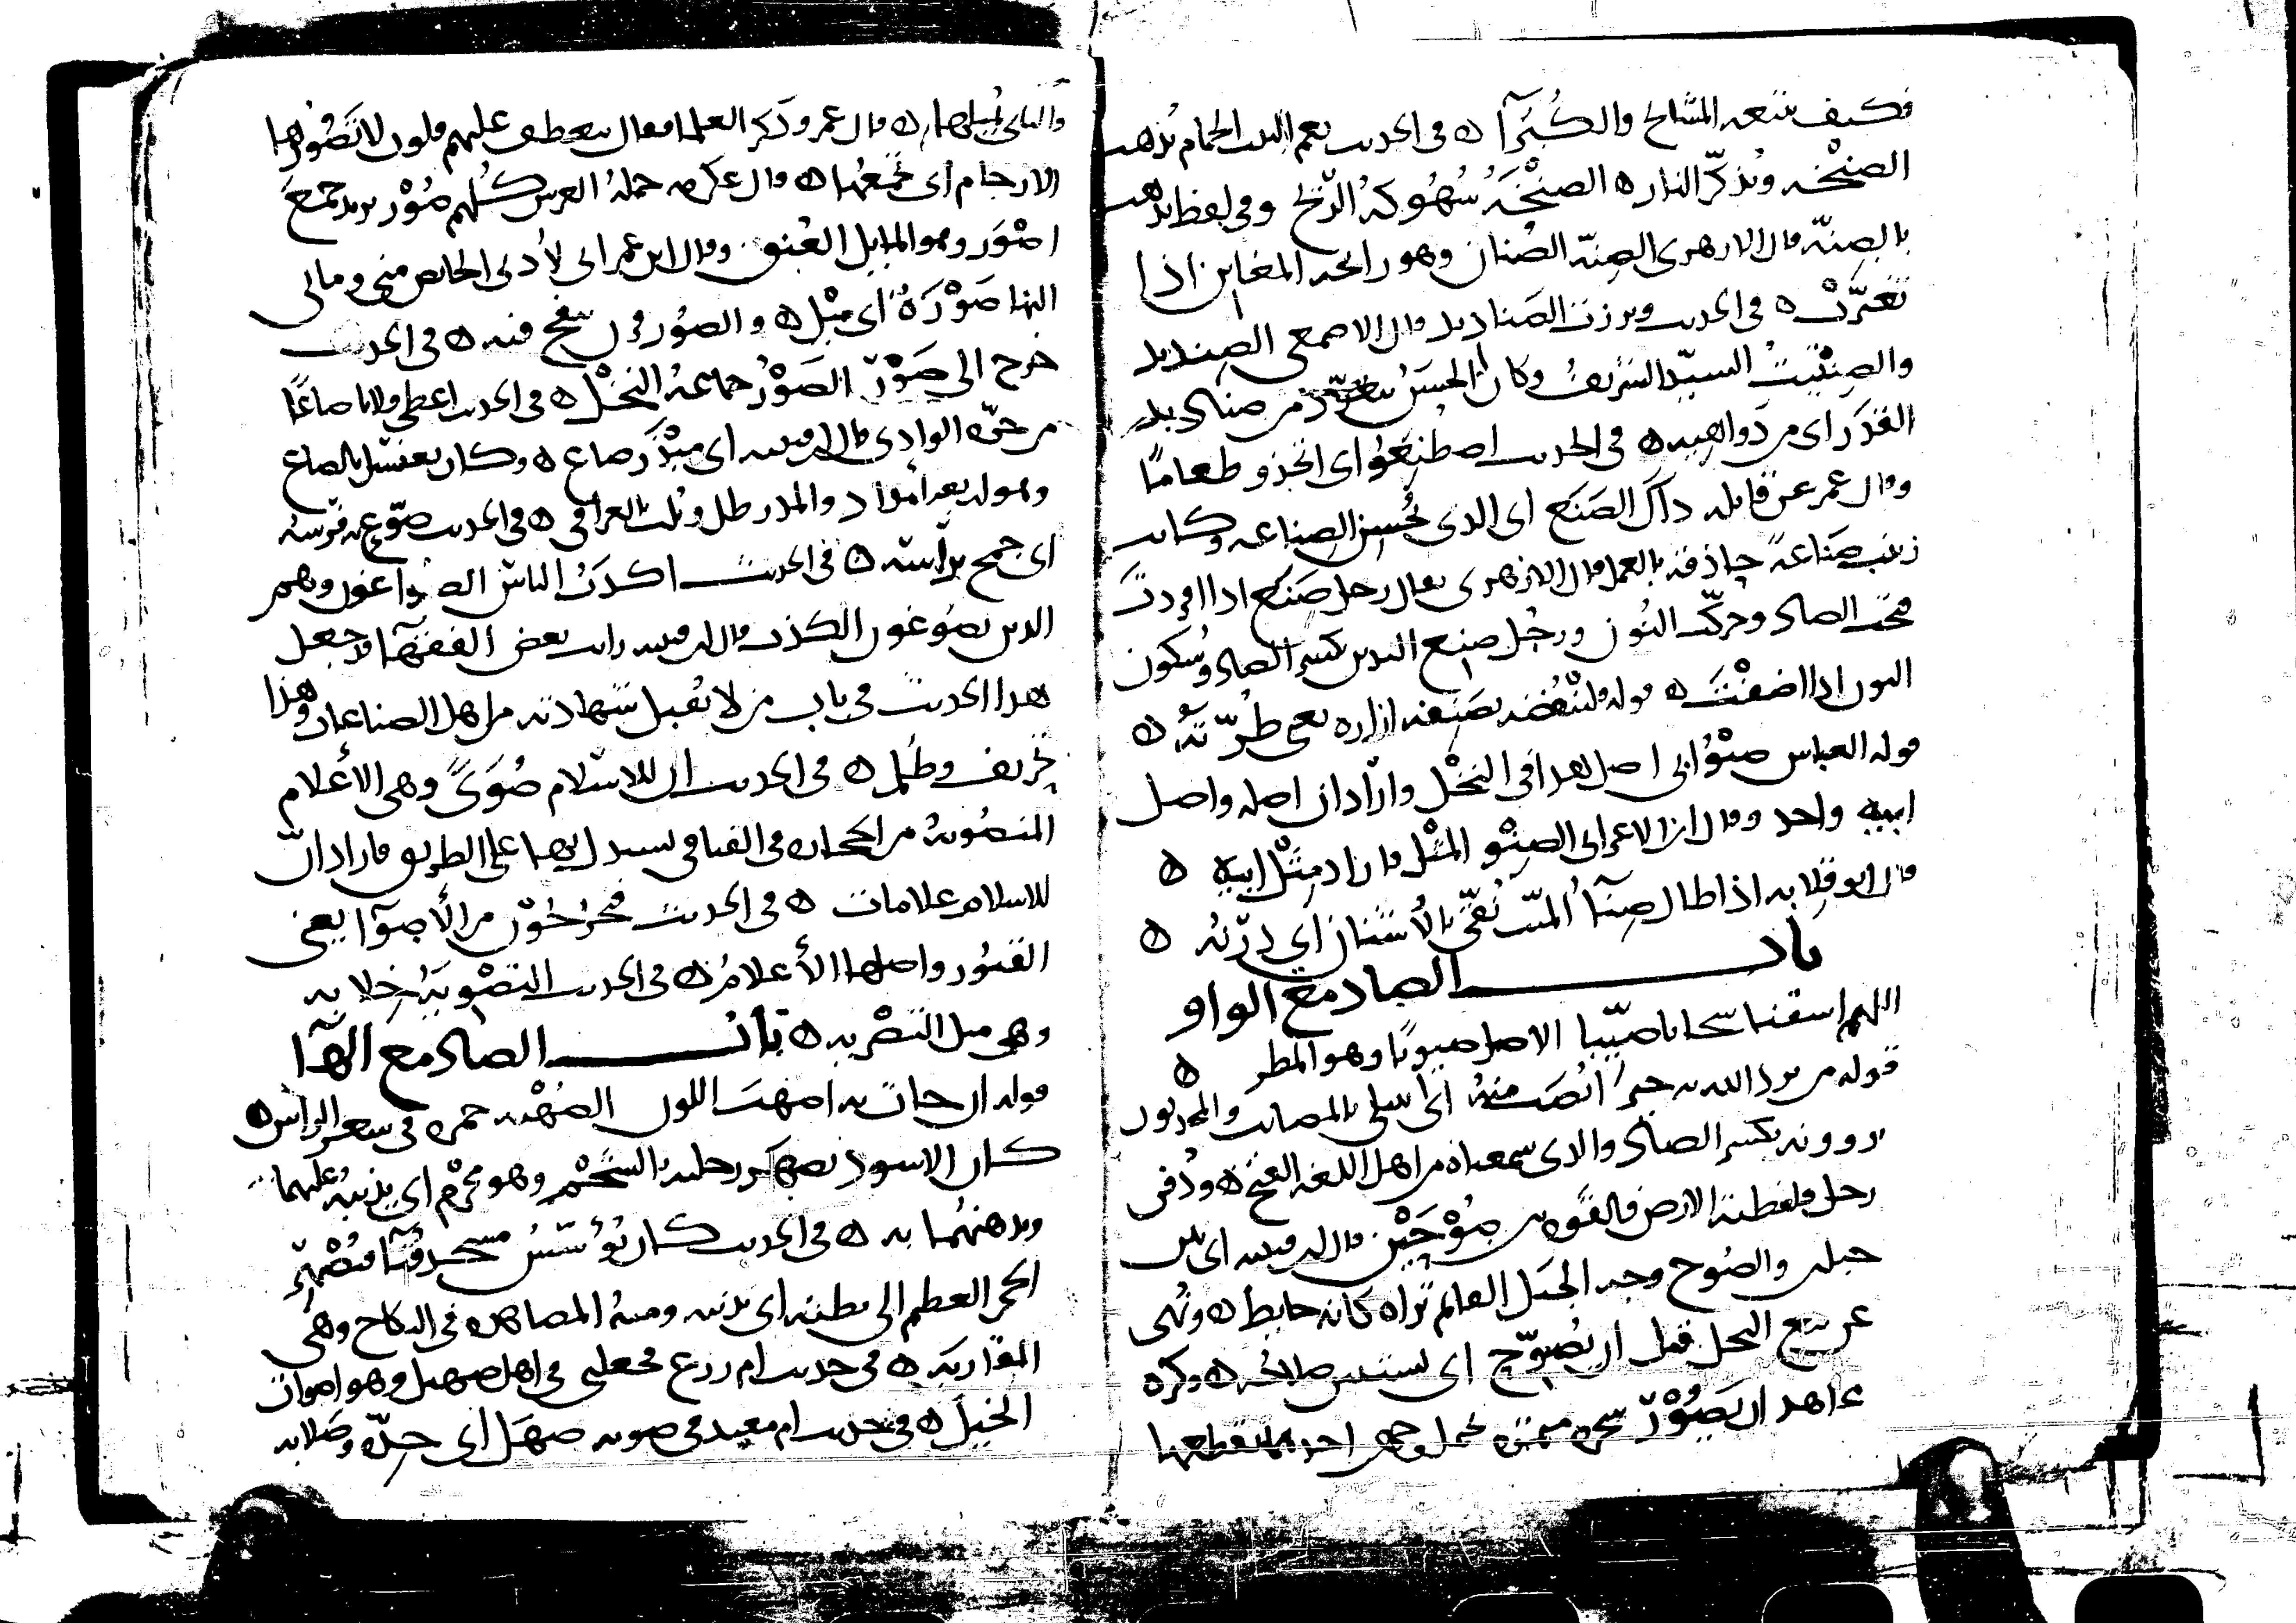 فكيف يتبعه المشايخ والكُبَرآ ه في الحديث نعم البيت الحمام يُذهب
الصنْخَه ويُذكّر النار ه الصنْخَة سُهُوكَةُ الدّنخ وفي لفظ يذهب
بالصنّه قال الازهري الصِنّة الصُنان وهو رائحه المغابن اذا
تغيّرتْ ه في الحديث وبرزت الصناديد قال الاصمعي الصنديد
والصِنْتيتُ السيّد الشريفُ وكان الحسَنُ يتعوّذ من صناديد
القَدَر اى من دواهيه ه في الحديث اصطنِعُوا اى اتخذو طعامًا
وقال عمر عن قاتله ذاكَ الصَنَع اى الذي يُحْسِن الصناعه وكانت
زينب صَنَاعةً حاذقة بالعمل قال الازهري يقال رجل صَنَع اذا افردتَ
فتحت الصاد وحركت النُون ورجُل صِنع اليدين بكسر الصاد وسُكون
النون اذا اضفْتَ ه قوله فلْيَنْفُضْه بصَنِفه ازاره يعني طُرّتَهُ ه
قوله العباس صِنْوُ ابي اصل هذا في النخْل وارادَ ان اصله واصل
ابيه واحد وقال ابن الاعرابي الصِنْو المِثْل فاراد مِثْل ابيه ه
قال ابو قلابه اذا طال صِنَآءُ الميّت نُقّيَ بالأُشنان اي دَرَنُه ه
بابـــــ الصاد مع الواو
اللهم اسقنا سحابا صيّبا الاصل صَيْوبًا وهو المطر ه
قوله من يرد الله به خيرًا يُصَب منهُ اى يبتلى بالمصائب والمحدثون
يروونه بكسر الصاد والذى سمعناه من اهل اللغه الفتح ه ودُفن
رجل فلفظته الارض فالقَوه بين صُوْحَيْن قال ابن قتيبه اى بين
جبلين والصُوح وجه الجَبَل القائم تراه كانه حايط ه ونُهى
عن بيع النخل قبل ان يُصوّحَ اى يستبين صلاحُه ه وكره
مجاهد ان يَصُوْرَ شجرة مثمرة يحمل وجهين احدهما يقطعها
والثاني يُميلها ه قال عمر وذكر العلما فقال ينعطف عليهم قلوب لا تَصُورُها
الارحام اى تجمعُها ه وقال عكرمه حملةُ العرش كُلُهم صُوْر يريد جمعَ
اصْوَر وهو المايل العُنق وقال ابن عمر انى لأُدنى الحائض منى وما بى
اليها صَوْرَةٌ اى ميْل ه والصُور قرن ينفخ فيه ه في الحديث
خرج الى صَوْر الصَوْرُ جماعةُ النَخْل ه في الحديث اعطى فلانا صاعًا
من حرّة الوادى قال ابن قتيبه اى مبْذَر صاع ه وكان يغتسل بالصاع
وهو اربعه أمداد والمد رطل وثلث بالعراقي ه في الحديث صَوّع به فرسه
اى جمح براسه ه في الحديث اكذبُ الناس الصواغون وهم
الذين يصُوغون الكذب قال ابن قتيبه رايت بعض الفقهآ قد جعل
هذا الحديث في باب من لا تُقبل شهادته من اهل الصناعات وهذا
تحريف وظلم ه في الحديث ان للاسلام صُوَىً وهي الأعلام
المنصُوبة من الحجاره في الفيافي يستدل بها على الطريق فاراد ان
للاسلام علامات ه في الحديث فخرجُوْن من الأَصوآ يعني
القبُور واصلها الأعلامُ ه في الحديث التصْويَةُ خِلابه
وهي مثل التصْريه ه بابـــــ الصاد مع الهآ
قوله ان جات به اصهب اللون الصُهْبه حمره في شعر الراس ه
كان الاسود يصهَر رجليه بالشَحْم وهو مُحْرِم اى يذيبُه عليهما
ويدهنهُما به ه في الحديث كان يُؤسّسُ مسجد قُبآ فيُصْهِر
الحجر العظيم الى بطنه اى يدنيه ومنهُ المصاهره في النكاح وهي
المقاربَه ه في حديث ام زرع فجعلني في اهل صهيل وهو اصوات
الخيل ه في حديث ام معبد في صوته صهَل اى حِدّه وصَلابه